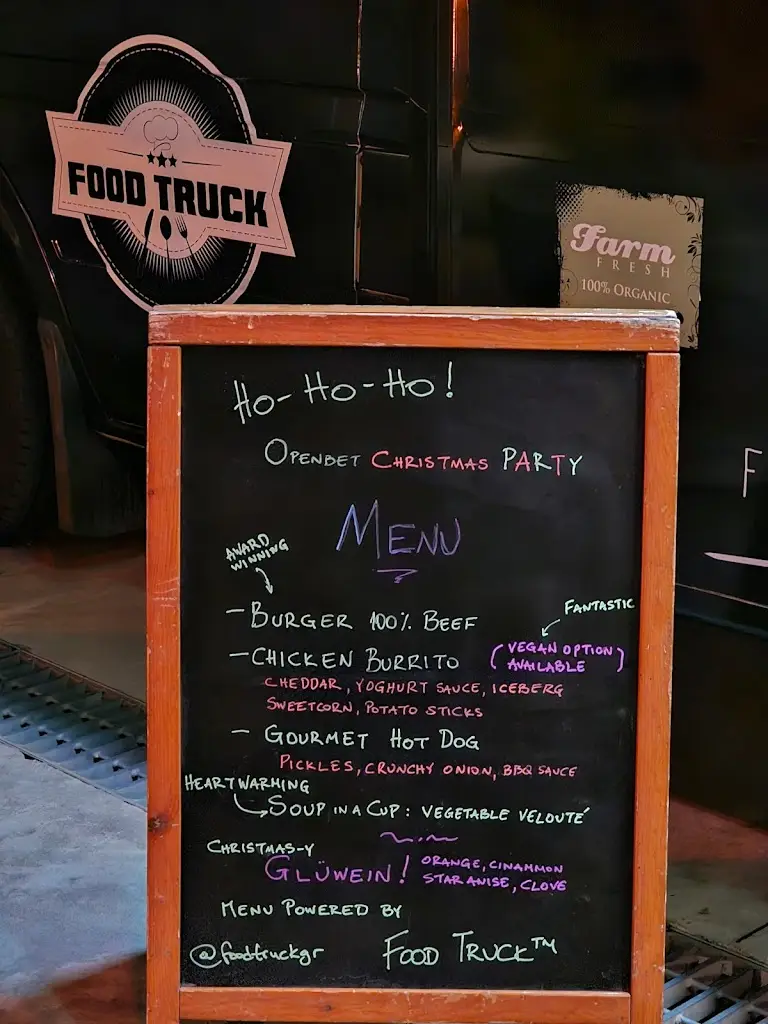 FOOD TRUCK
Farm
FRESH
100% ORGANIC
HO-HO-HO!
OPENBET CHRISTMAS PARTY
MENU
AWARD
WINNING
- BURGER 100% BEEF
FANTASTIC
- CHICKEN BURRITO
(VEGAN OPTION
AVAILABLE)
CHEDDAR, YOGHURT SAUCE, ICEBERG
SWEETCORN, POTATO STICKS
- GOURMET HOT DOG
PICKLES, CRUNCHY ONION, BBQ SAUCE
HEARTWARMING
SOUP IN A CUP: VEGETABLE VELOUTÉ
CHRISTMAS-Y
GLÜWEIN! ORANGE, CINAMMON
STAR ANISE, CLOVE
MENU POWERED BY
@foodtruckgr FOOD TRUCK™
F